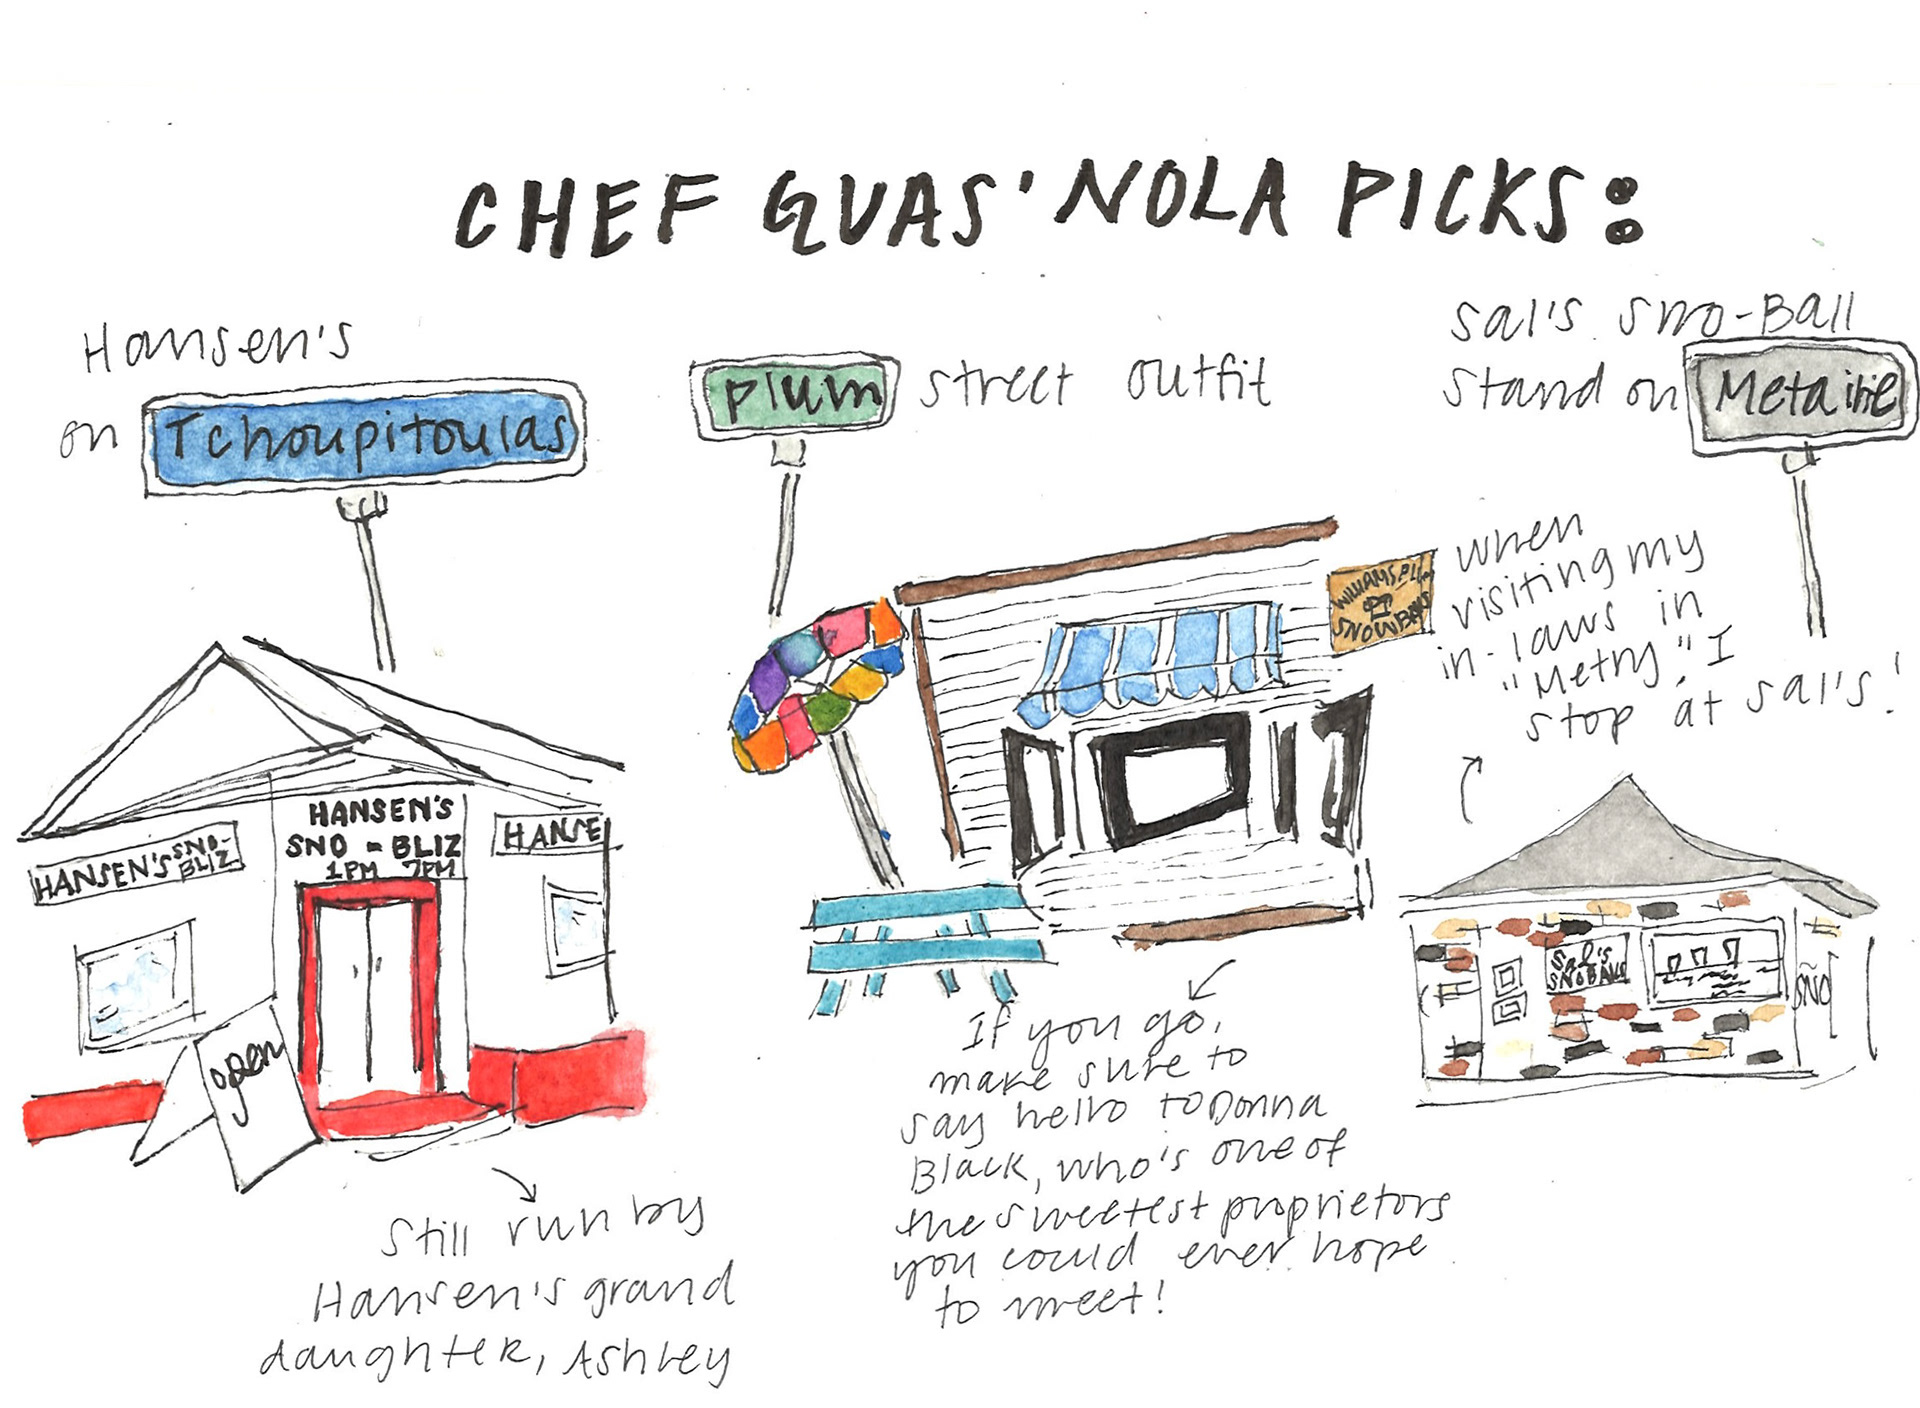 CHEF GUAS' NOLA PICKS:
Hansen's
on Tchoupitoulas
HANSEN'S SNO-
BLIZ
HANSEN'S
SNO-BLIZ
1PM 7PM
HANSE
open
Still run by
Hansen's grand
daughter, Ashley
Plum street outfit
WILLIAMS PLUM
SNOWBALLS
If you go,
make sure to
say hello to Donna
Black, who's one of
the sweetest proprietors
you could ever hope
to meet!
Sal's Sno-Ball
Stand on Metairie
when
visiting my
in-laws in
"Metry", I
stop at Sal's!
Sal's
SNOBALLS
SNO